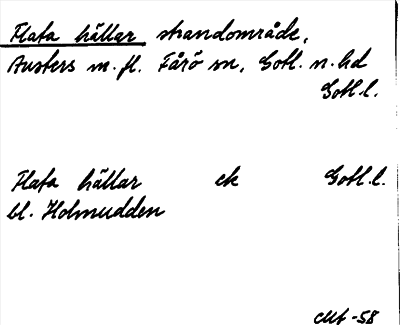 Flata hällar strandområde,
Austers m. fl. Fårö sn, Gotl. n. hd
Gotl. l.
Flata hällar ek Gotl. l.
bl. Holmudden
-58